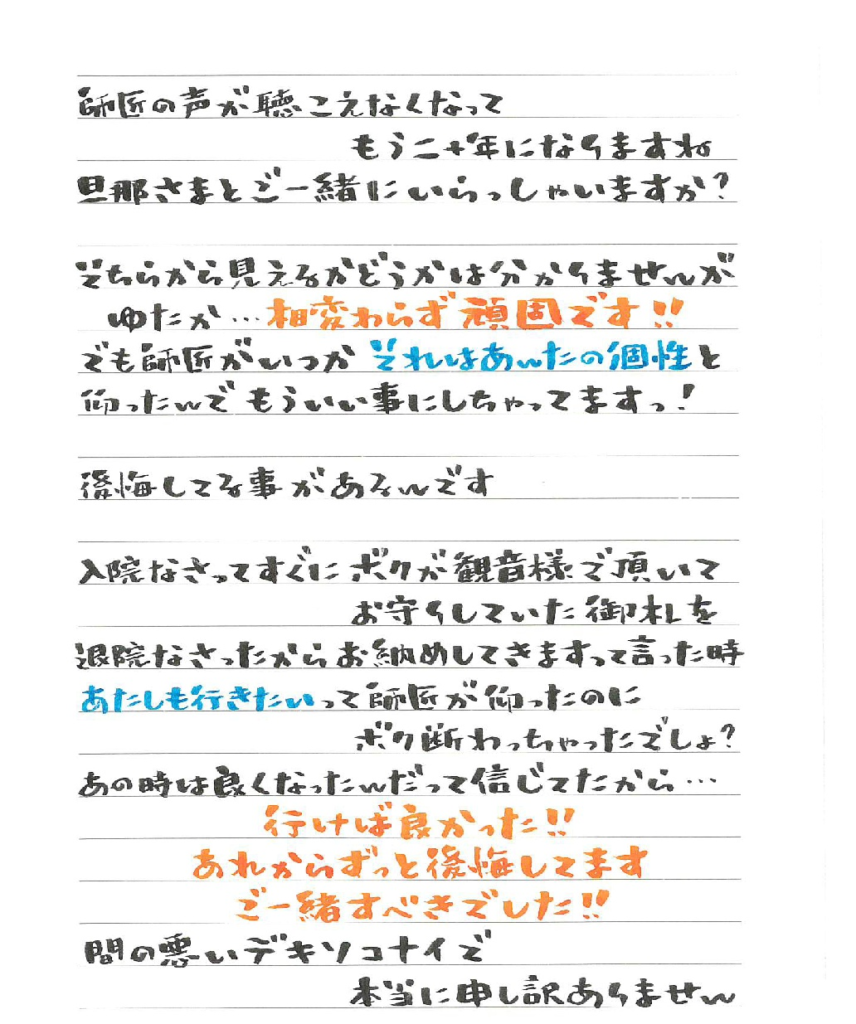 師匠の声が聴こえなくなって
もう二十年になりますね
旦那さまとご一緒にいらっしゃいますか?
そちらから見えるかどうかは分かりませんが
ゆたか…相変わらず頑固です!!
でも師匠がいつか それはあんたの個性と
仰ったんで もういい事にしちゃってますっ!
後悔してる事があるんです
入院なさってすぐに ボクが観音様で頂いて
お守りしていた御札を
退院なさったからお納めしてきますって言った時
あたしも行きたいって師匠が仰ったのに
ボク断わっちゃったでしょ?
あの時は良くなったんだって信じてたから…
行けば良かった!!
あれからずっと後悔してます
ご一緒すべきでした!!
間の悪いデキソコナイで
本当に申し訳ありません